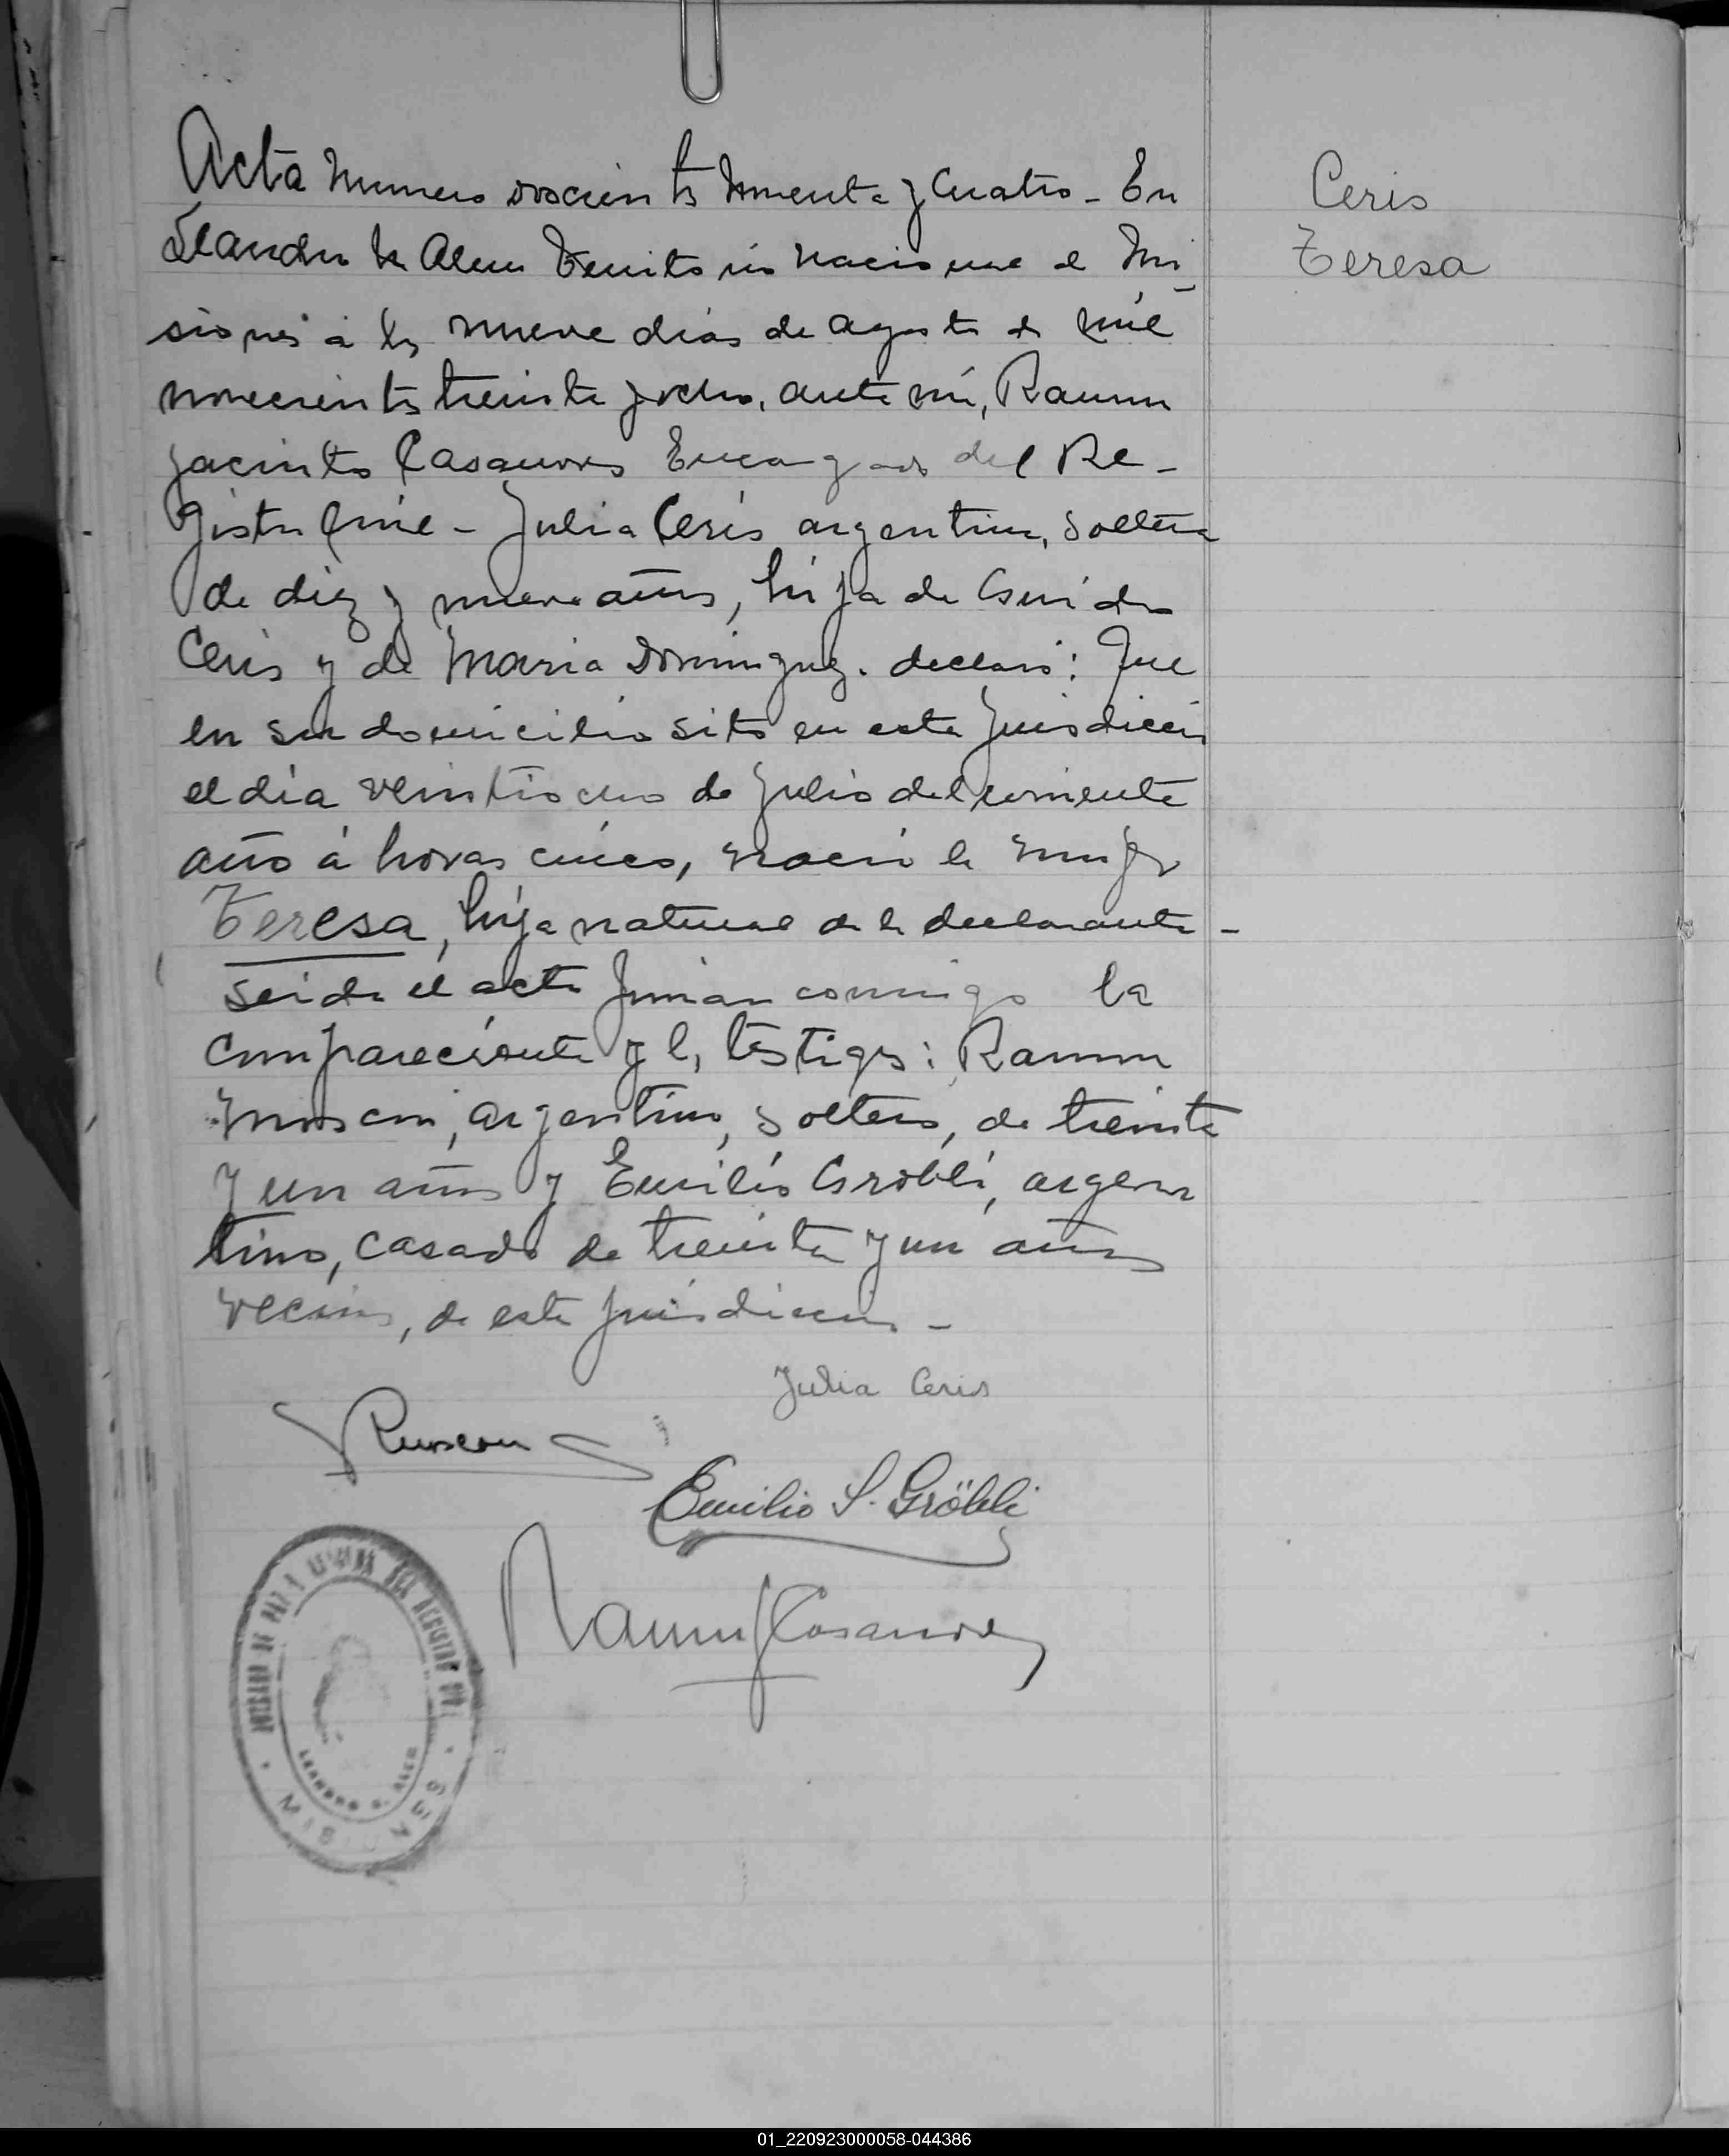 Acta numero doscientos noventa y cuatro - En
Leandro N Alem Territorio nacional de Mi
siones á los nueve dias de agosto de mil
novecientos treinta y ocho, ante mí, Ramon
Jacinto Casanova Encargado del Re-
gistro Civil - Julia Ceris argentina, soltera
de diez y nueve años, hija de Guido
Ceris y de Maria Dominguez. declaró: Que
en su domicilio sito en esta jurisdiccion
el día veintiocho de Julio del corriente
año á horas cinco, nació la mujer
Teresa, hija natural de la declarante -
Leida el acta firman conmigo la
compareciente y los testigos: Ramon
argentino, soltero, de treinta
y un años y Emilio Grobli, argen
tino, casado de treinta y un años
vecinos, de esta jurisdiccion -
Ceris
Teresa
Julia Ceris
Emilio S. Gröbli
Ramon J Casanova
JUZGADO DE PAZ Y DEL REGISTRO CIVIL
LEANDRO N. ALEM
MISIONES
01_220923000058-044386